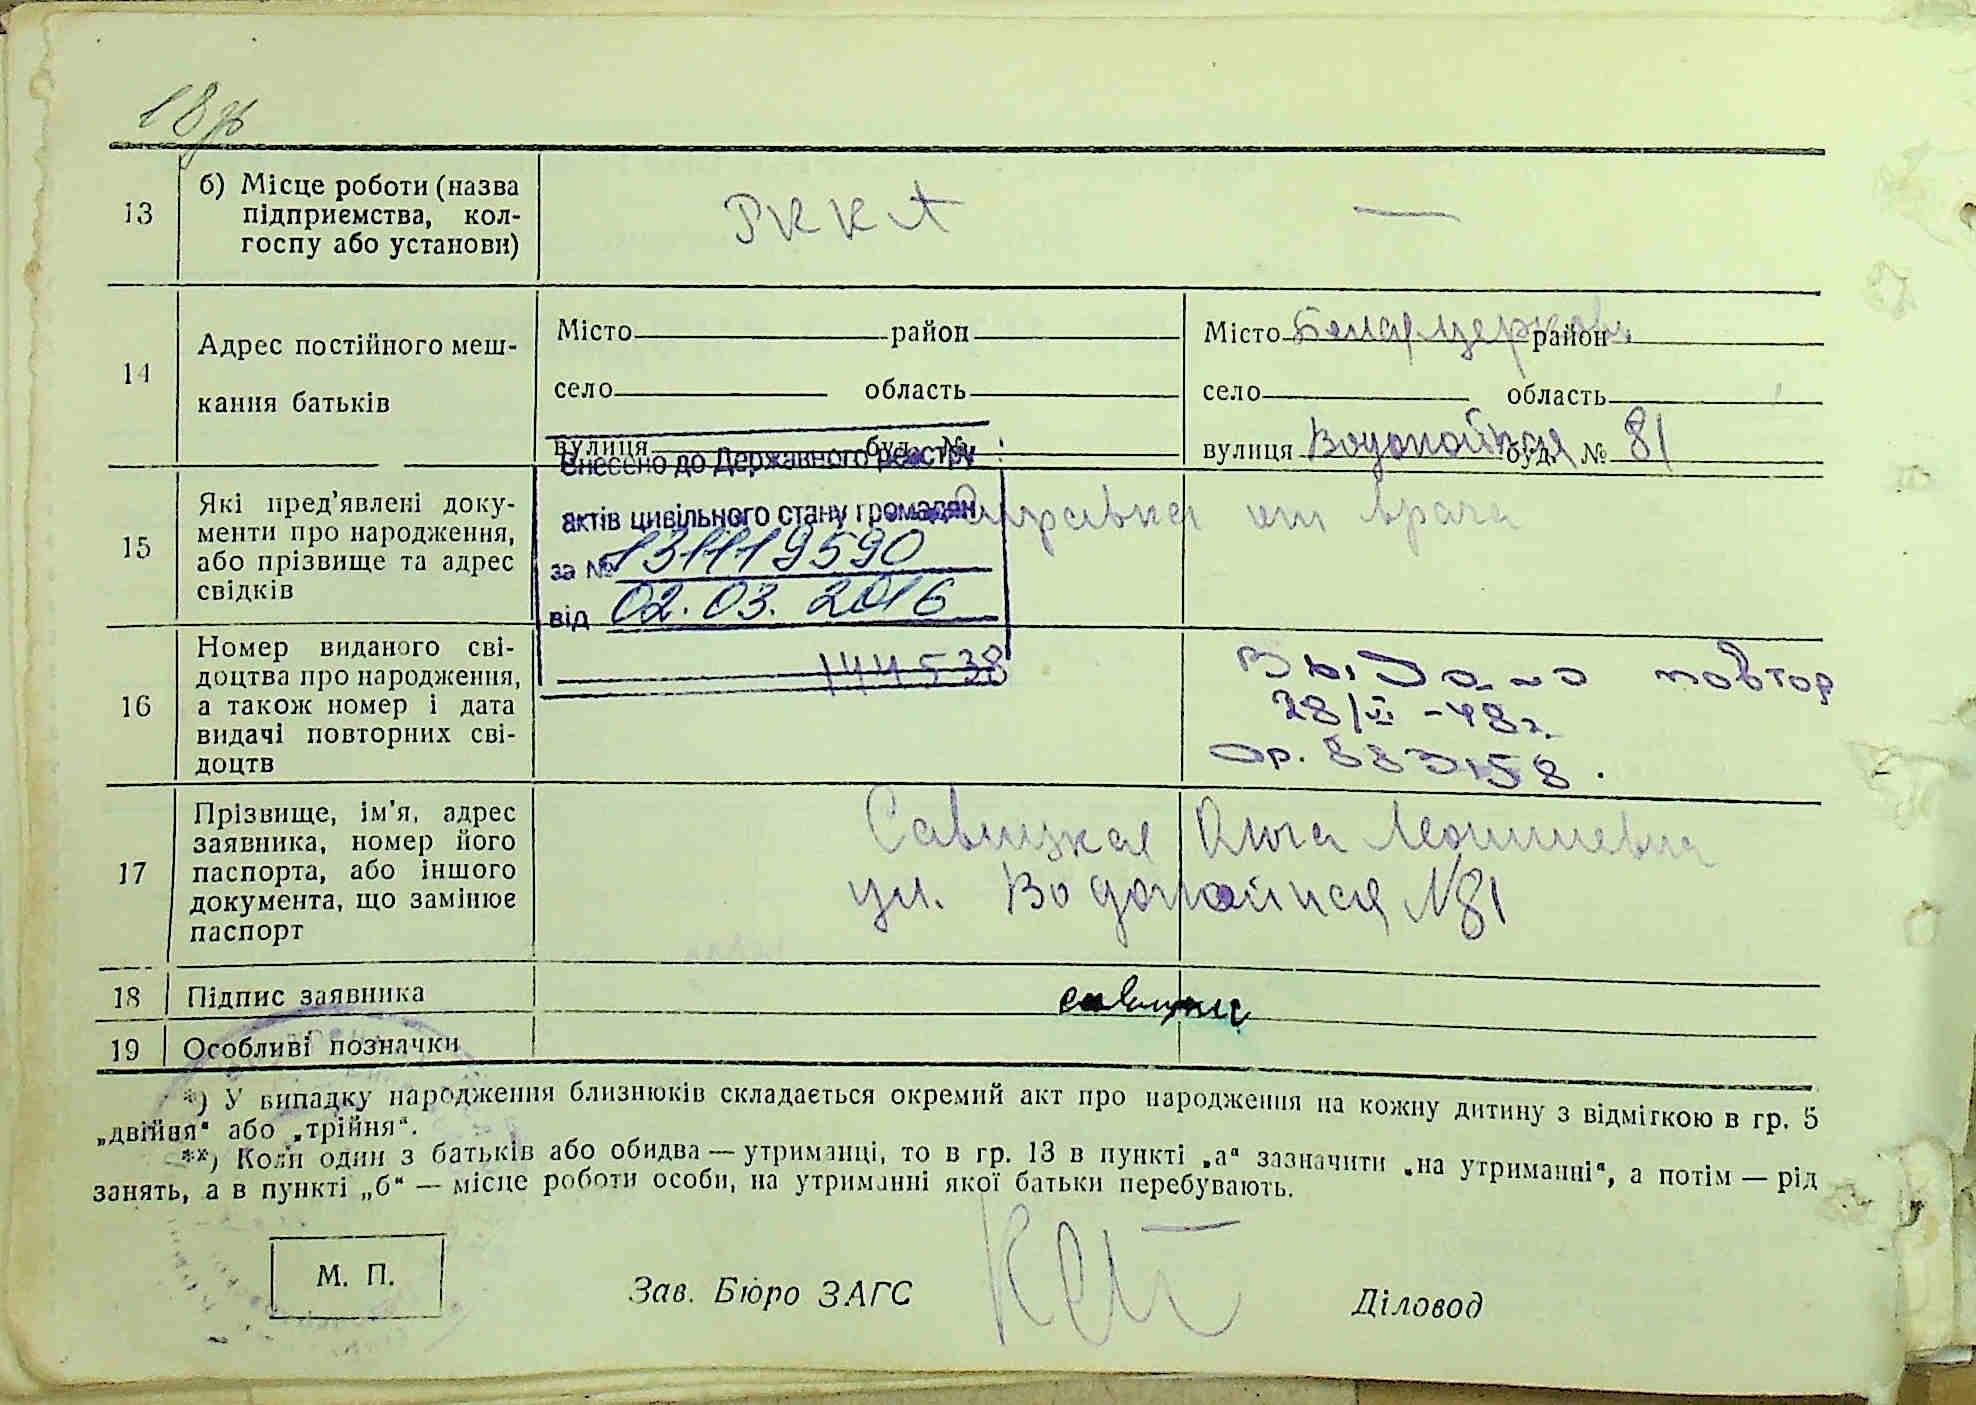 13 б) Місце роботи (назва
підприємства, кол-
госпу або установи)
РККА —
14 Адрес постійного меш-
кання батьків
Місто район
село область
вулиця буд. №
Місто Белая церковь район
село область
вулиця Водопойная буд. № 81
15 Які пред'явлені доку-
менти про народження,
або прізвище та адрес
свідків
Справка от врача
Внесено до Державного реєстру
актів цивільного стану громадян
за №
від 02.03.2016
16 Номер виданого сві-
доцтва про народження,
а також номер і дата
видачі повторних сві-
доцтв
144538
Выдано повтор
28/VI-48г.
17 Прізвище, ім'я, адрес
заявника, номер його
паспорта, або іншого
документа, що замінює
паспорт
Савицкая Ольга
ул. Водопойная №81
18 Підпис заявника
19 Особливі позначки
*) У випадку народження близнюків складається окремий акт про народження на кожну дитину з відміткою в гр. 5
„двійня“ або „трійня“.
**) Коли один з батьків або обидва — утриманці, то в гр. 13 в пункті „а“ зазначити „на утриманні“, а потім — рід
занять, а в пункті „б“ — місце роботи особи, на утриманні якої батьки перебувають.
М. П.
Зав. Бюро ЗАГС
Діловод